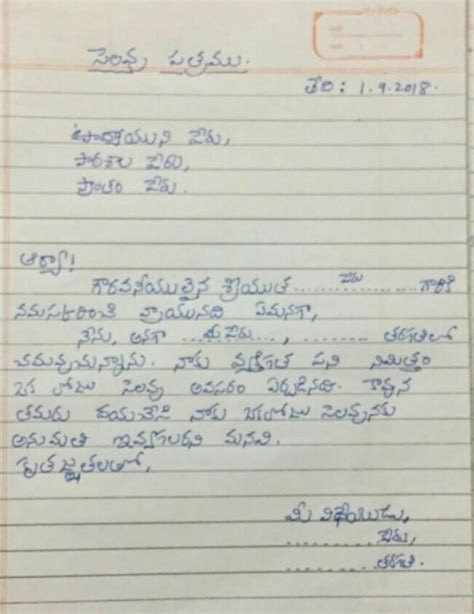 సెలవు పత్రము.
తేది : 1.9.2018.
ఉపాధ్యాయుని పేరు,
పాఠశాల పేరు,
ప్రాంతం పేరు.
ఆర్యా!
గౌరవనీయులైన శ్రీయుత ......... పేరు ......... గారికి
నమస్కరించి వ్రాయునది ఏమనగా,
నేను, అనగా ... మీ పేరు ..., ........ తరగతిలో
చదువుచున్నాను. నాకు వ్యక్తిగత పని నిమిత్తం
ఒక రోజు సెలవు అవసరం ఏర్పడినది. కావున
తమరు దయచేసి నాకు ఒకరోజు సెలవునకు
అనుమతి ఇవ్వగలరని మనవి.
కృతజ్ఞతలతో,
మీ విధేయుడు,
.......... పేరు,
.......... తరగతి.